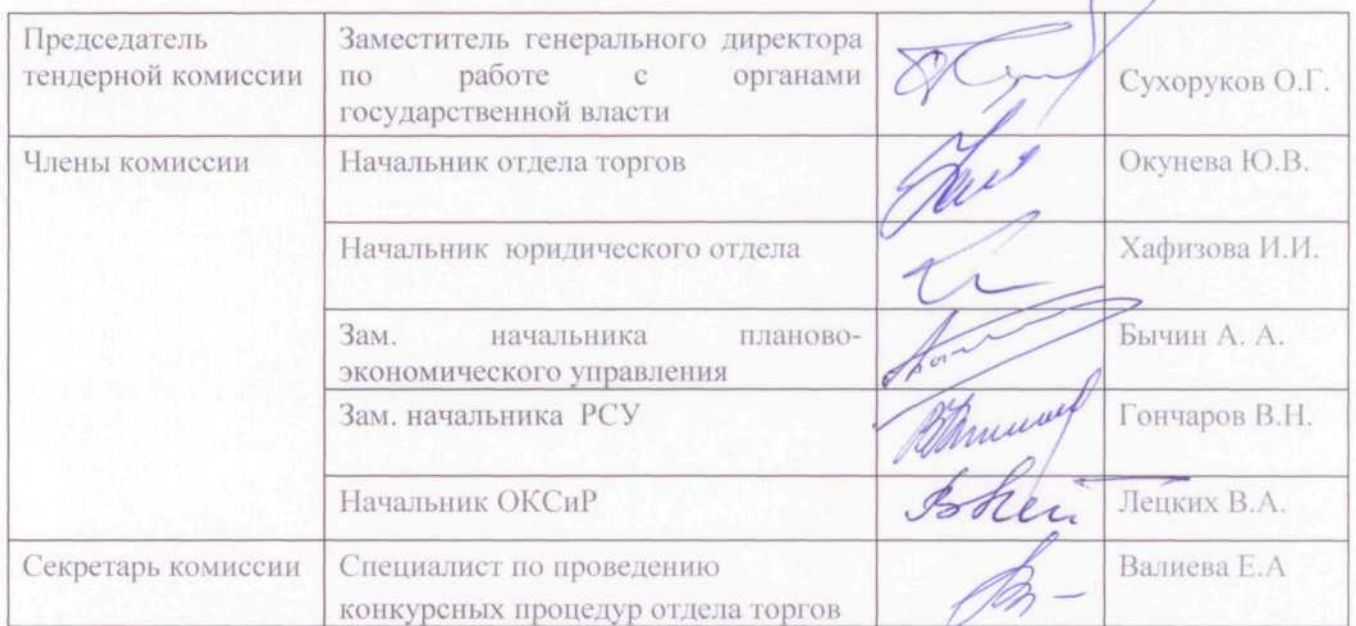 Председатель
тендерной комиссии
Заместитель генерального директора
по работе с органами
государственной власти
Сухоруков О.Г.
Члены комиссии
Начальник отдела торгов
Окунева Ю.В.
Начальник юридического отдела
Хафизова И.И.
Зам. начальника планово-
экономического управления
Бычин А. А.
Зам. начальника РСУ
Гончаров В.Н.
Начальник ОКСиР
Лецких В.А.
Секретарь комиссии
Специалист по проведению
конкурсных процедур отдела торгов
Валиева Е.А